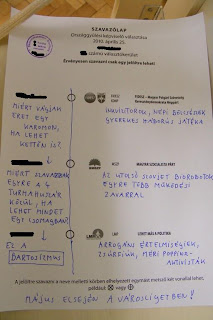 SZAVAZÓLAP
Országgyűlési képviselő választása
2010. április 25.
számú választókerület
Érvényesen szavazni csak egy jelöltre lehet!
MIÉRT VÁGJAK
ERET EGY
KAROMON,
HA LEHET
KETTŐN IS?
FIDESZ
KDNP
FIDESZ - Magyar Polgári Szövetség
Kereszténydemokrata Néppárt
INKVIZITOROK, NEMI BÖLCSÉSZEK
GYEREKES HÁBORÚS JÁTÉKA
MIÉRT SZAVAZZAK
EGYRE A 4
TURHAHUSZÁR
KÖZÜL, HA
LEHET MINDET
EGY CSOMAGBAN?
MSZP
MAGYAR SZOCIALISTA PÁRT
AZ UTOLSÓ SZOVJET BIOROBOTOK
EGYRE TÖBB MŰKÖDÉSI
ZAVARRAL
EZ A
BARTOSIZMUS
LMP
LEHET MÁS A POLITIKA
ARROGÁNS ÉRTELMISÉGIEK,
ZSÚRFIÚK, MERI POPPINZ-
AKTIVISTÁK
A jelöltre szavazni a neve melletti körben elhelyezett egymást metsző két vonallal lehet,
például: vagy
MÁJUS ELSEJÉN A VÁROSLIGETBEN!